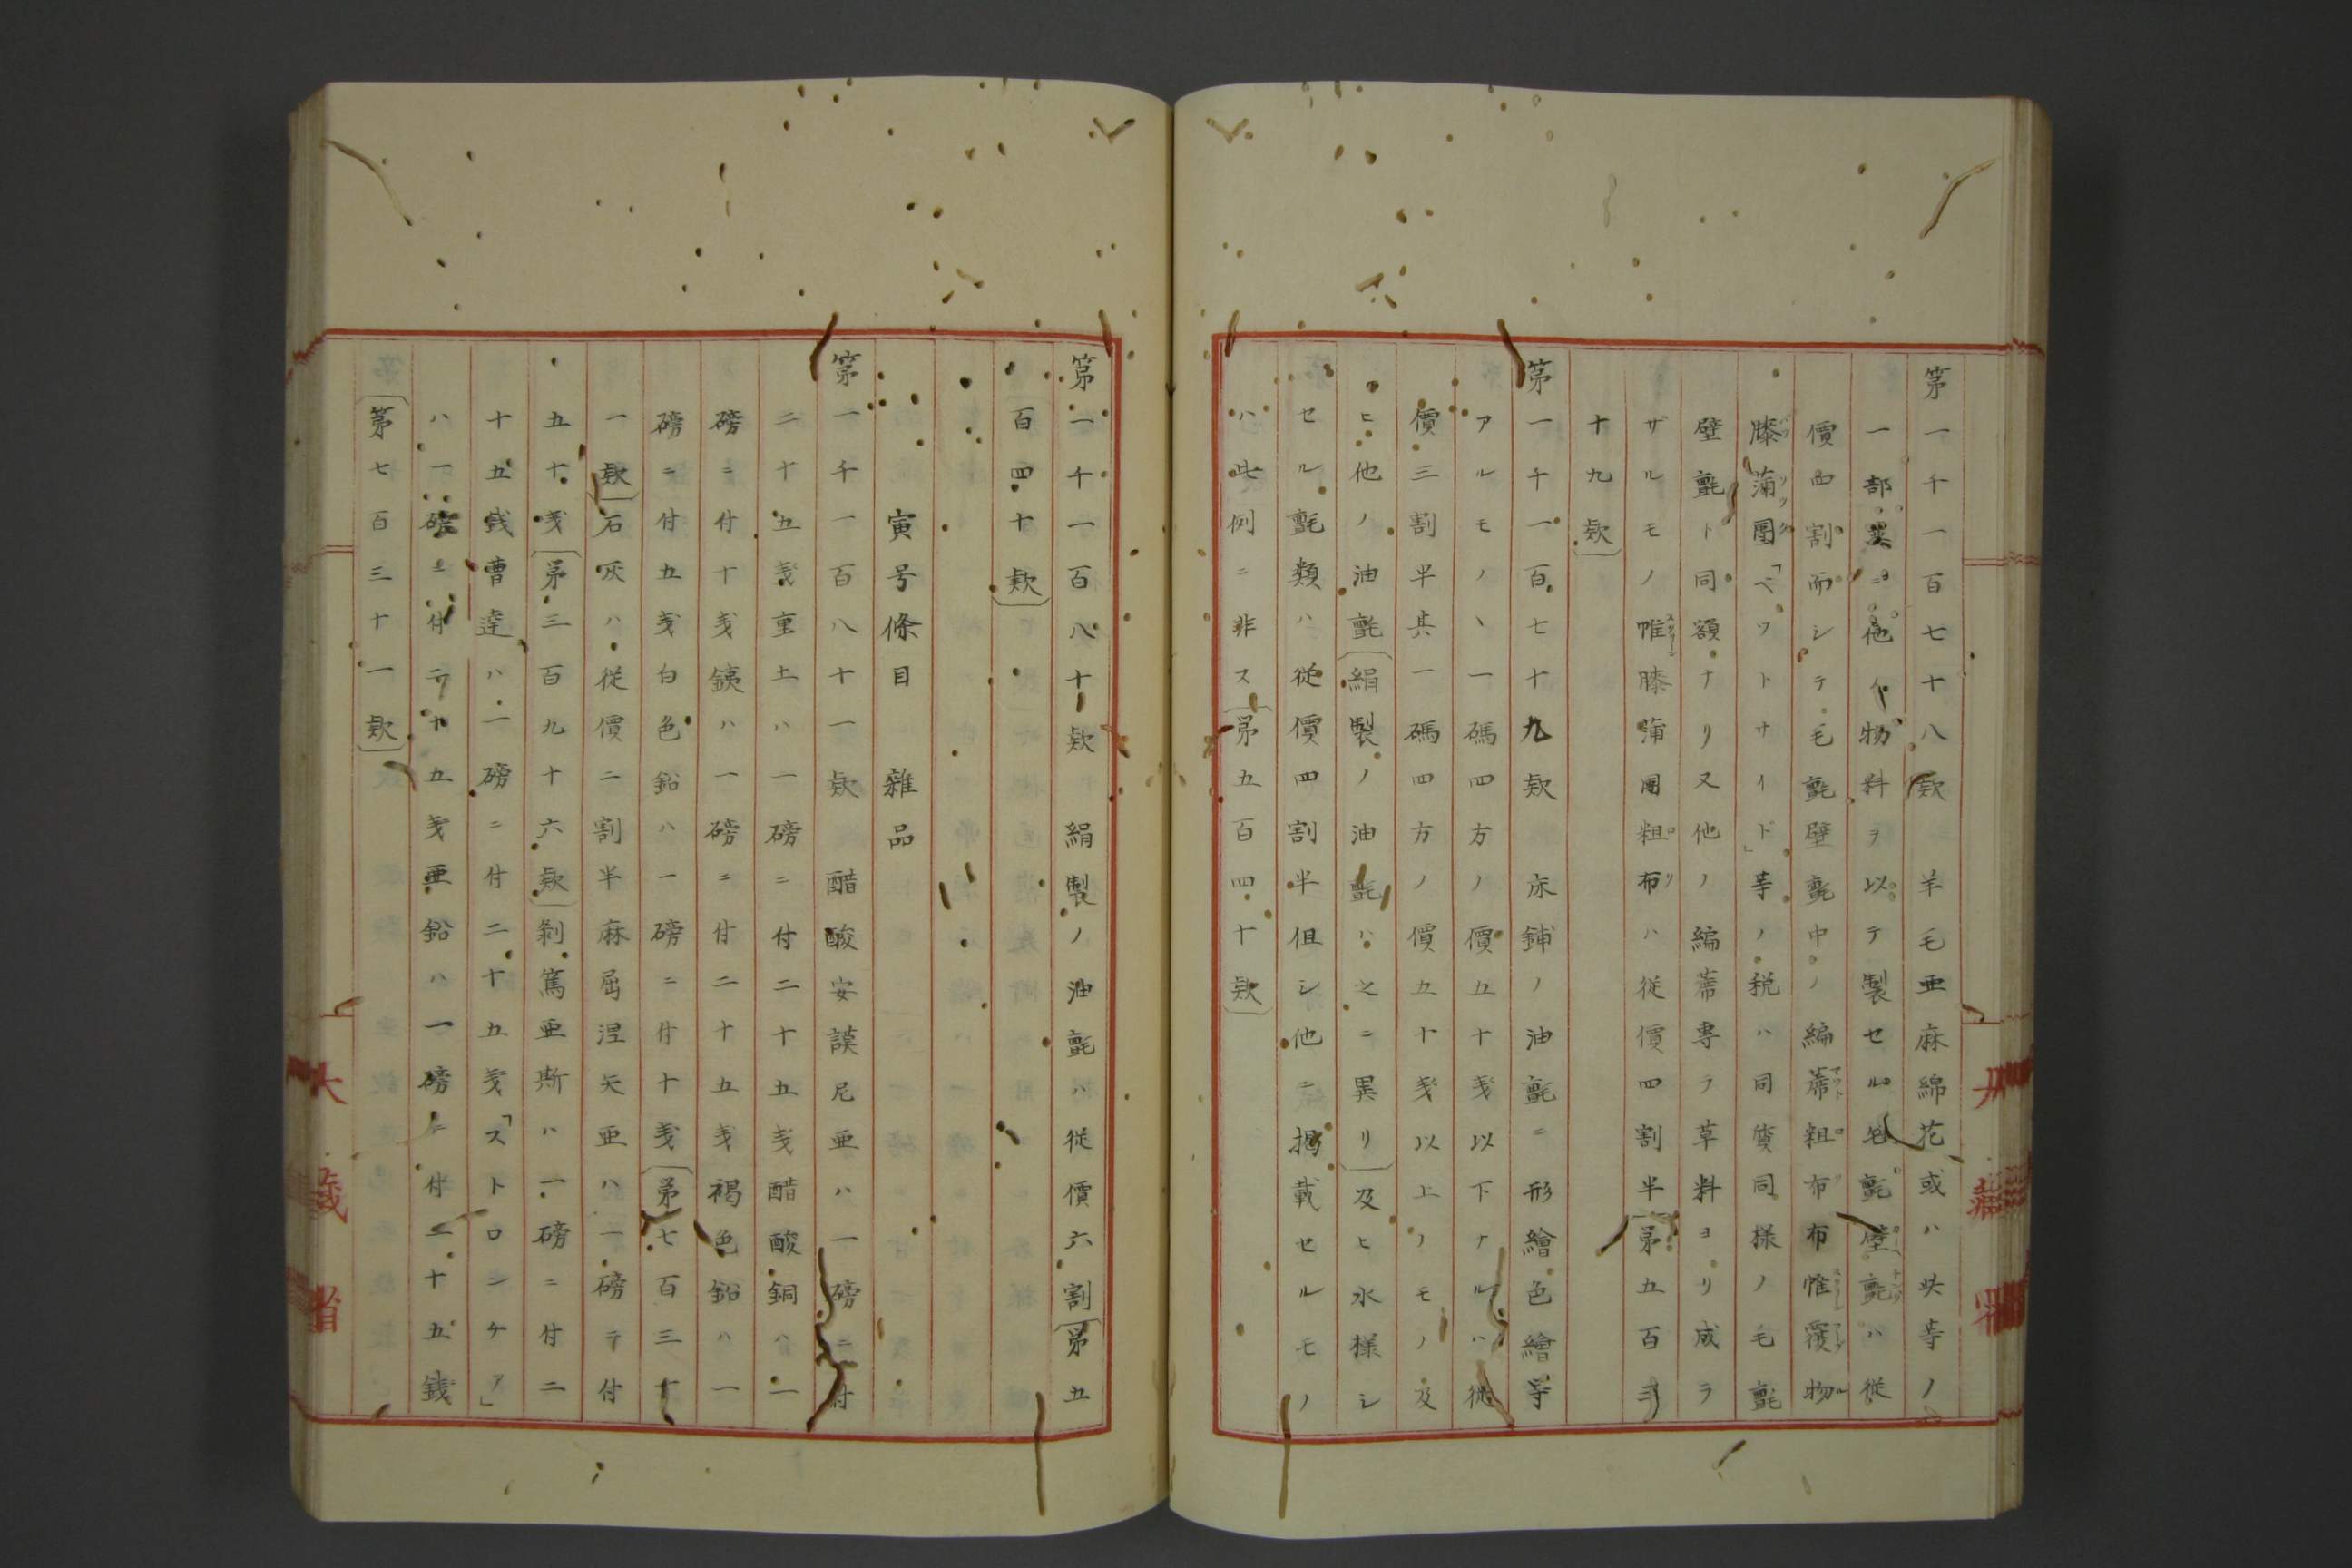 第一千一百七十八款　羊毛亜麻綿花或ハ此等ノ
一部並ニ他ノ物料ヲ以テ製セル包氈壁氈ハ従
價四割而シテ毛氈壁氈中ノ編蓆粗布布帷覆物
膝蒲團「ベツトサイド」等ノ税ハ同質同様ノ毛氈
壁氈ト同額ナリ又他ノ編蓆専ラ草料ヨリ成ラ
ザルモノ帷膝蒲團粗布ハ従價四割半〔第五百三
十九款〕
第一千一百七十九款　床鋪ノ油氈ニ形繪色繪等
アルモノヽ一碼四方ノ價五十戔以下ナルハ従
價三割半其一碼四方ノ價五十戔以上ノモノ及
ヒ他ノ油氈〔絹製ノ油氈ハ之ニ異リ〕及ヒ水様シ
セル氈類ハ従價四割半但シ他ニ掲載セルモノ
ハ此例ニ非ス〔第五百四十款〕
第一千一百八十款　絹製ノ油氈ハ従價六割〔第五
百四十款〕
寅号條目　雜品
第一千一百八十一款　醋酸安謨尼亜ハ一磅ニ付
二十五戔重土ハ一磅ニ付二十五戔醋酸銅ハ一
磅ニ付十戔銕ハ一磅ニ付二十五戔褐色鉛ハ一
磅ニ付五戔白色鉛ハ一磅ニ付十戔〔第七百三十
一款〕石灰ハ従價二割半麻屈涅矢亜ハ一磅ニ付
五十戔〔第三百九十六款〕剥篤亜斯ハ一磅ニ付二
十五戔曹達ハ一磅ニ付二十五戔「ストロンケア」
ハ一磅ニ付二十五戔亜鉛ハ一磅ニ付二十五錢
〔第七百三十一款〕
大藏省